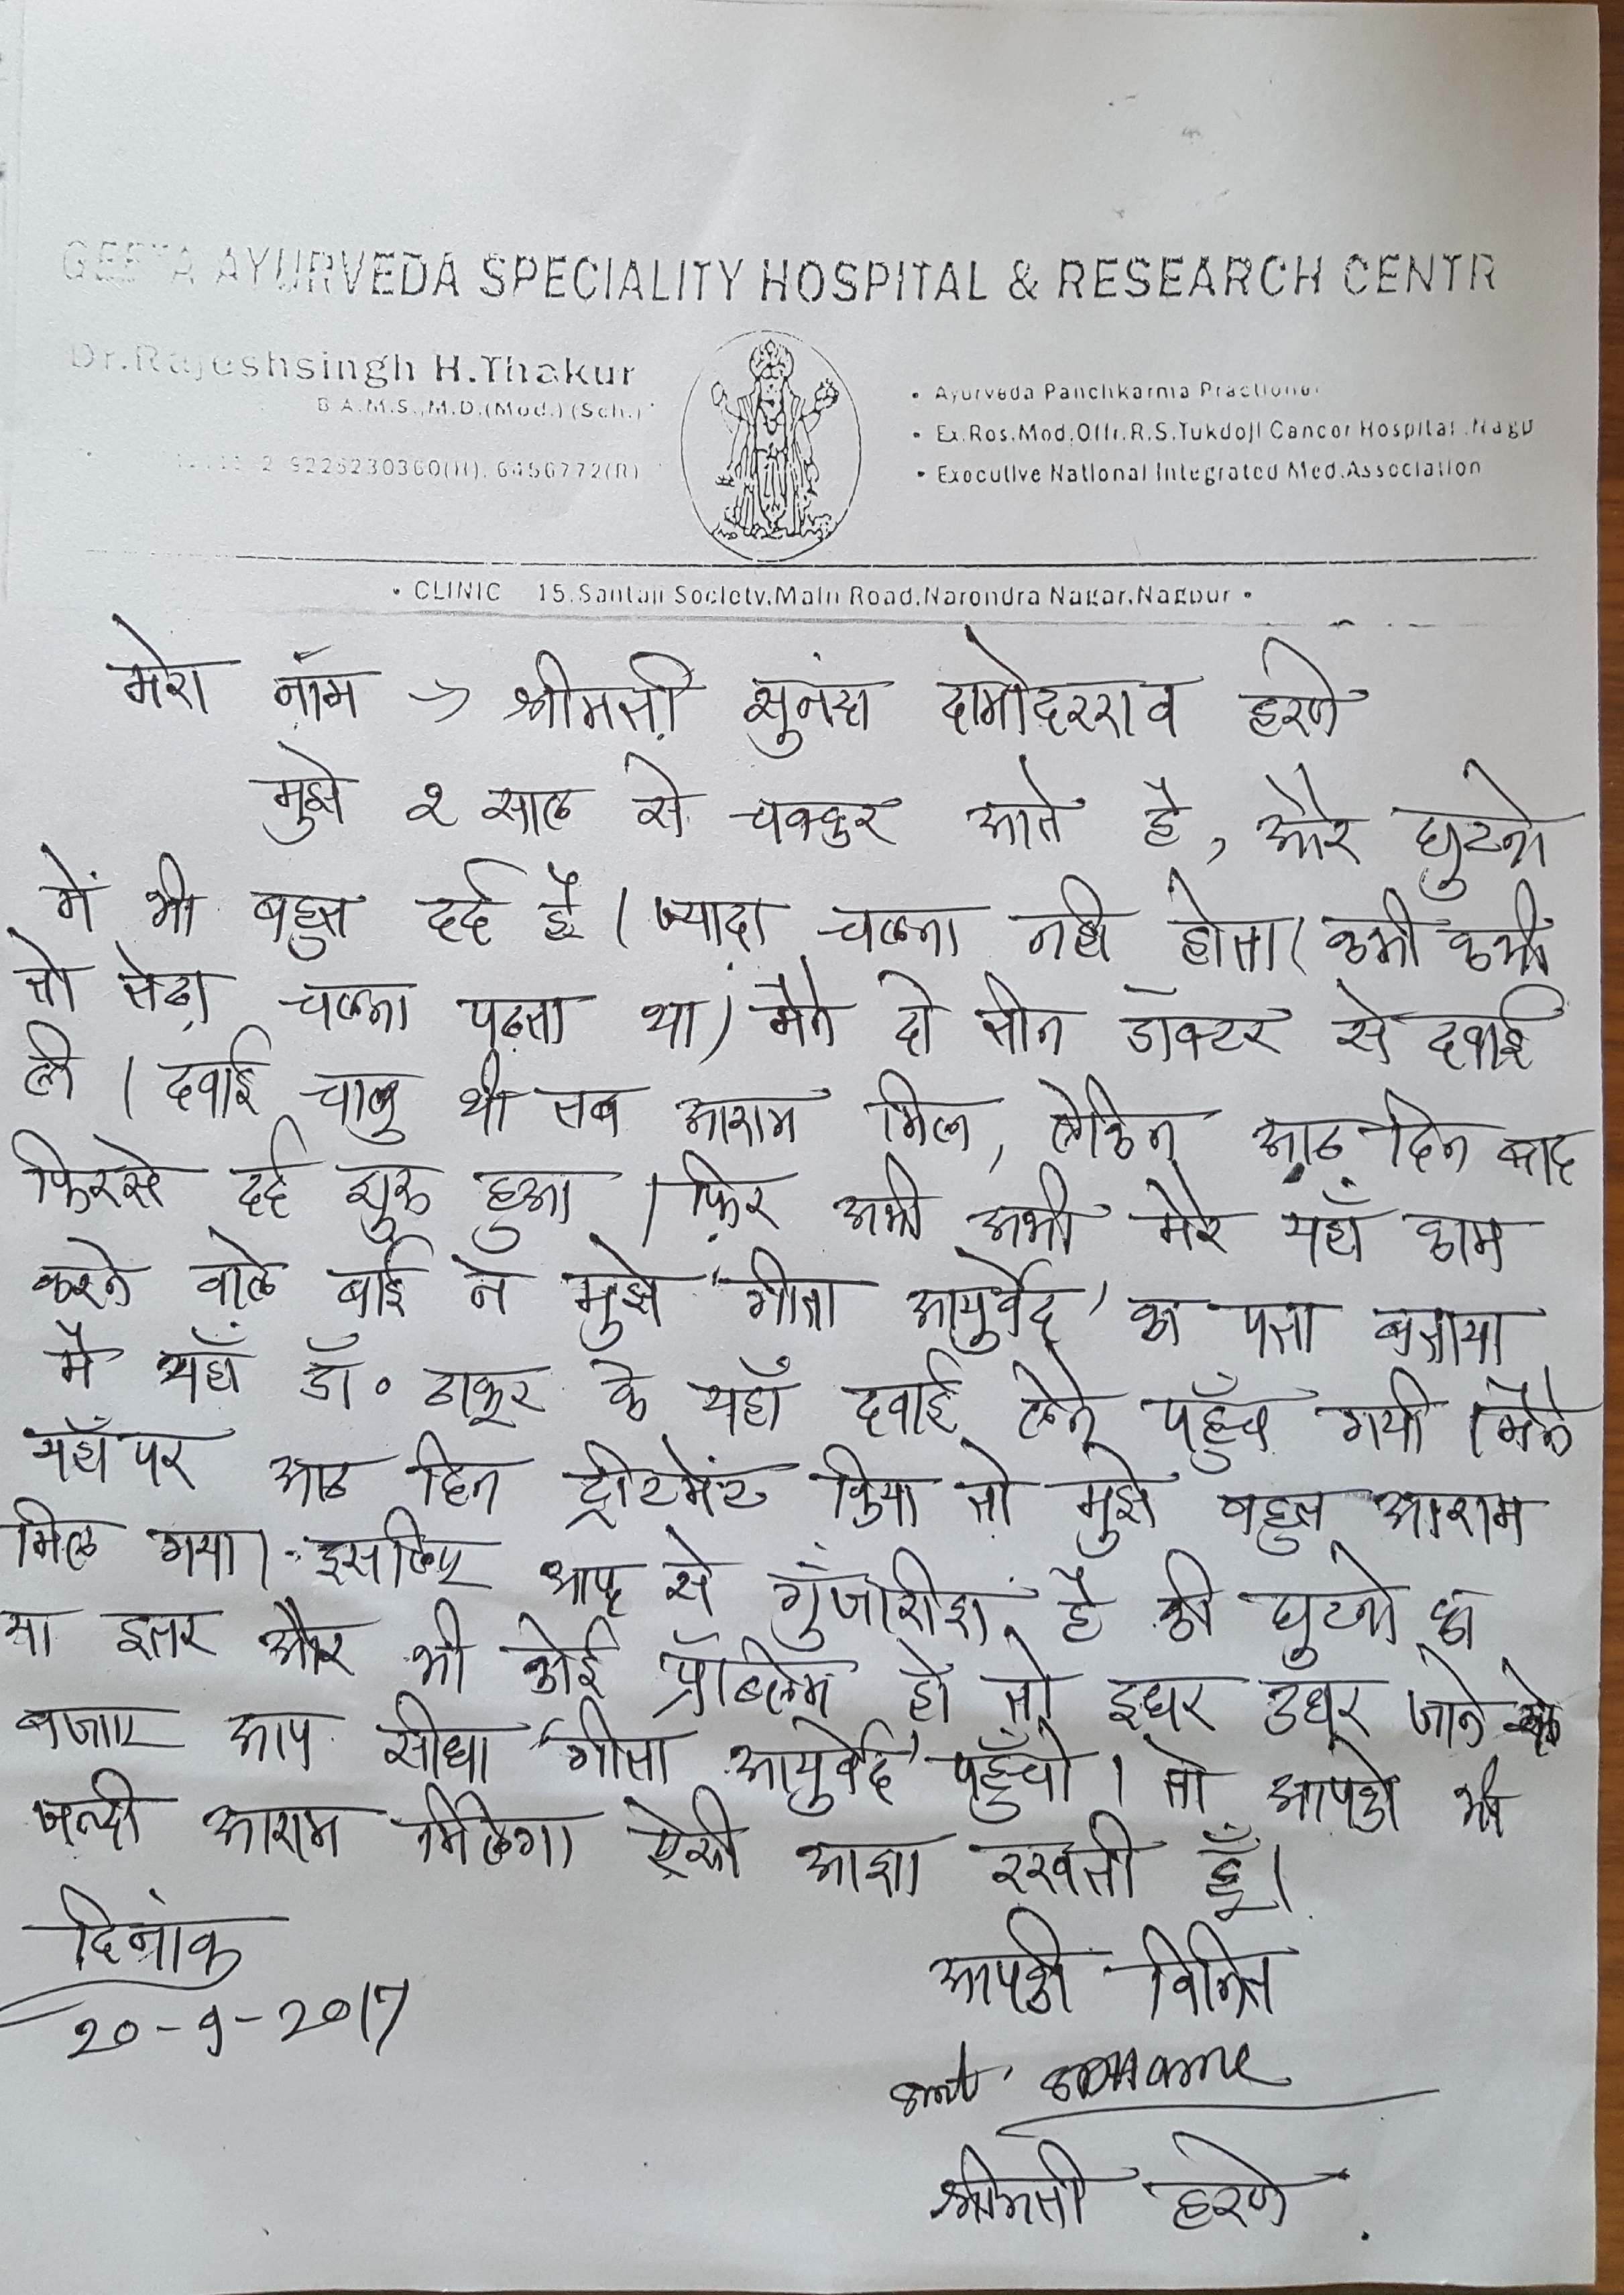 GEETA AYURVEDA SPECIALITY HOSPITAL & RESEARCH CENTR
Dr.Rajeshsingh H.Thakur
B.A.M.S.,M.D.(Med.)(Sch.)
9226230360(H), 6456772(R)
• Ayurveda Panchkarma Practioner
• Ex.Res.Mod.Offr.R.S.Tukdoji Cancer Hospital .Nagp
• Executive National Integrated Med.Association
• CLINIC 15,Santaji Society,Main Road,Narendra Nagar,Nagpur •
मेरा नाम → श्रीमती सुनंदा दामोदरराव हरणे
मुझे २ साल से चक्कर आते है, और घुटनो
में भी बहुत दर्द है। ज्यादा चलना नही होता। कभी कभी
तो तेढा चलना पढता था। मैने दो तीन डॉक्टर से दवाई
ली। दवाई चालु थी तब आराम मिला, लेकिन आठ दिन बाद
फिरसे दर्द शुरु हुआ। फिर अभी अभी मेरे यहाँ काम
करने वाले बाई ने मुझे 'गीता आयुर्वेद' का पता बताया
मै यहाँ डॉ. ठाकूर के यहाँ दवाई लेने पहुँच गयी। मैने
यहाँ पर आठ दिन ट्रीटमेंट किया तो मुझे बहुत आराम
मिल गया। इसलिए आप से गुंजारीश है की घुटनो का
या इतर और भी कोई प्रॉब्लेम हो तो इधर उधर जाने के
बजाए आप सीधा 'गीता आयुर्वेद' पहुँचो। तो आपको भी
जल्दी आराम मिलेगा ऐसी आशा रखती हूँ।
दिनांक
20-9-2017
आपकी विनित
smt.
श्रीमती हरणे